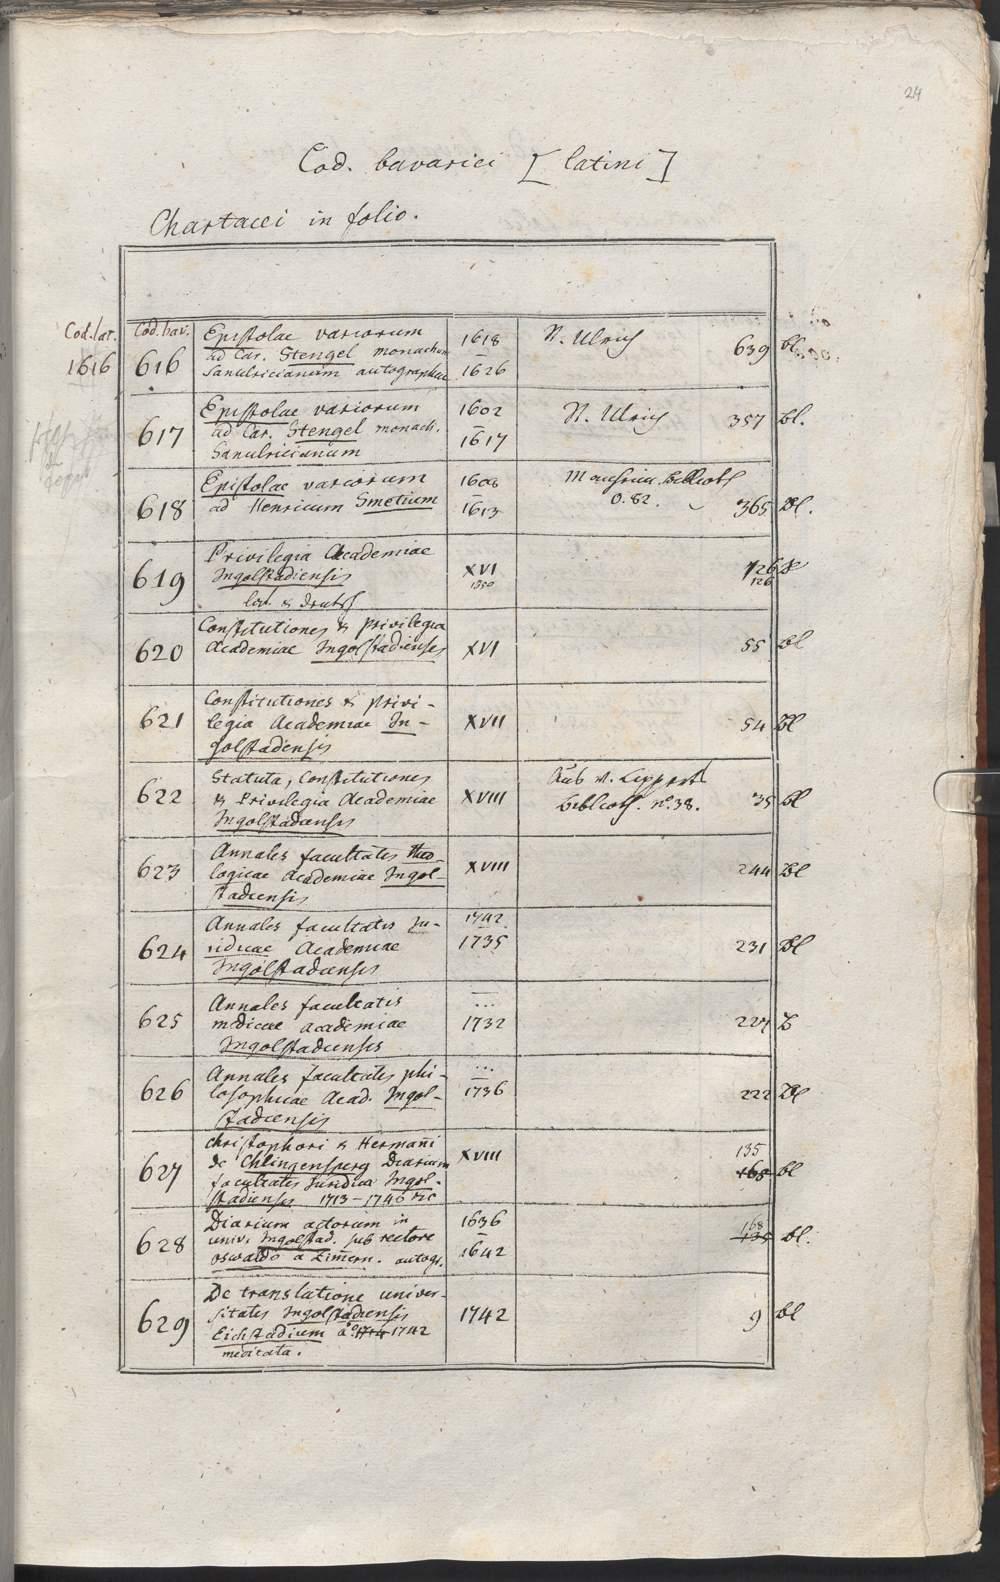 24
Cod. bavarici [latini]
Chartacei in folio.
Cod. lat. Cod. bav.
1616 616 Epistolae variorum
ad Car. Stengel monachum
Sanulricianum autographae
1618
–
1626
St. Ulrich
639 bl.
617 Epistolae variorum
ad Car. Stengel monach.
Sanulricianum
1602
–
1617
St. Ulrich
357 bl.
618 Epistolae variorum
ad Henricum Smetium
1608
–
1613
0.82.
365 Bl.
619 Privilegia Academiae
Ingolstadiensis
lat. & deutsch
XVI
126
126
620 Constitutiones & privilegia
Academiae Ingolstadienses
XVI
55 bl
621 Constitutiones & privi-
legia Academiae In-
golstadiensis
XVII
54 Bl
622 Statuta, Constitutiones
& Privilegia Academiae
Ingolstadiensis
XVIII
Aus v. Lipperts
Biblioth. no. 38.
35 bl
623 Annales facultatis theo-
logicae Academiae Ingol-
stadiensis
XVIII
244 Bl
624 Annales facultatis Ju-
ridicae Academiae
Ingolstadiensis
1735
231 Bl
625 Annales facultatis
medicae academiae
Ingolstadiensis
...
1732
227 B
626 Annales facultatis phi-
losophicae Acad. Ingol-
stadiensis
...
1736
222 Bl
627 Christophori & Hermañi
de Chlingensperg Diarium
facultatis Juridicae Ingol-
stadiensis 1713–1746 etc
XVIII
135
168 bl
628 Diarium actorum in
univ. Ingolstad. sub rectore
oswaldo a Zim̃ern. autogr.
1636
–
1642
168
135 bl.
629 De translatione univer-
sitatis Ingolstadiensis
Eichstadium ao. 1714 1742
meditata.
1742
9 bl